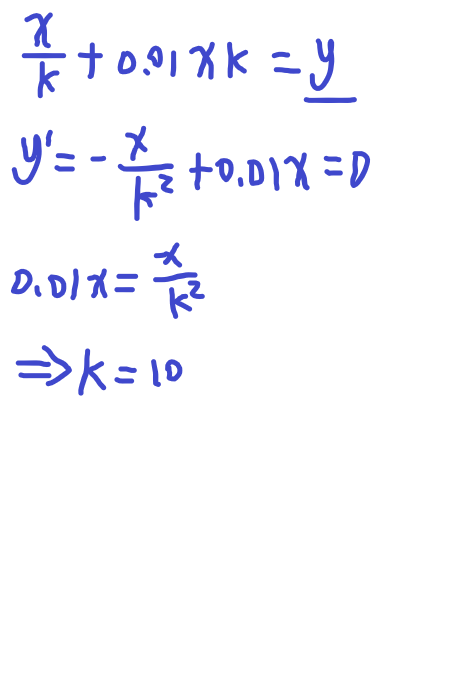 x/k + 0.01xk = y
y' = - x/k² + 0.01x = 0
0.01x = x/k²
⇒ k = 10